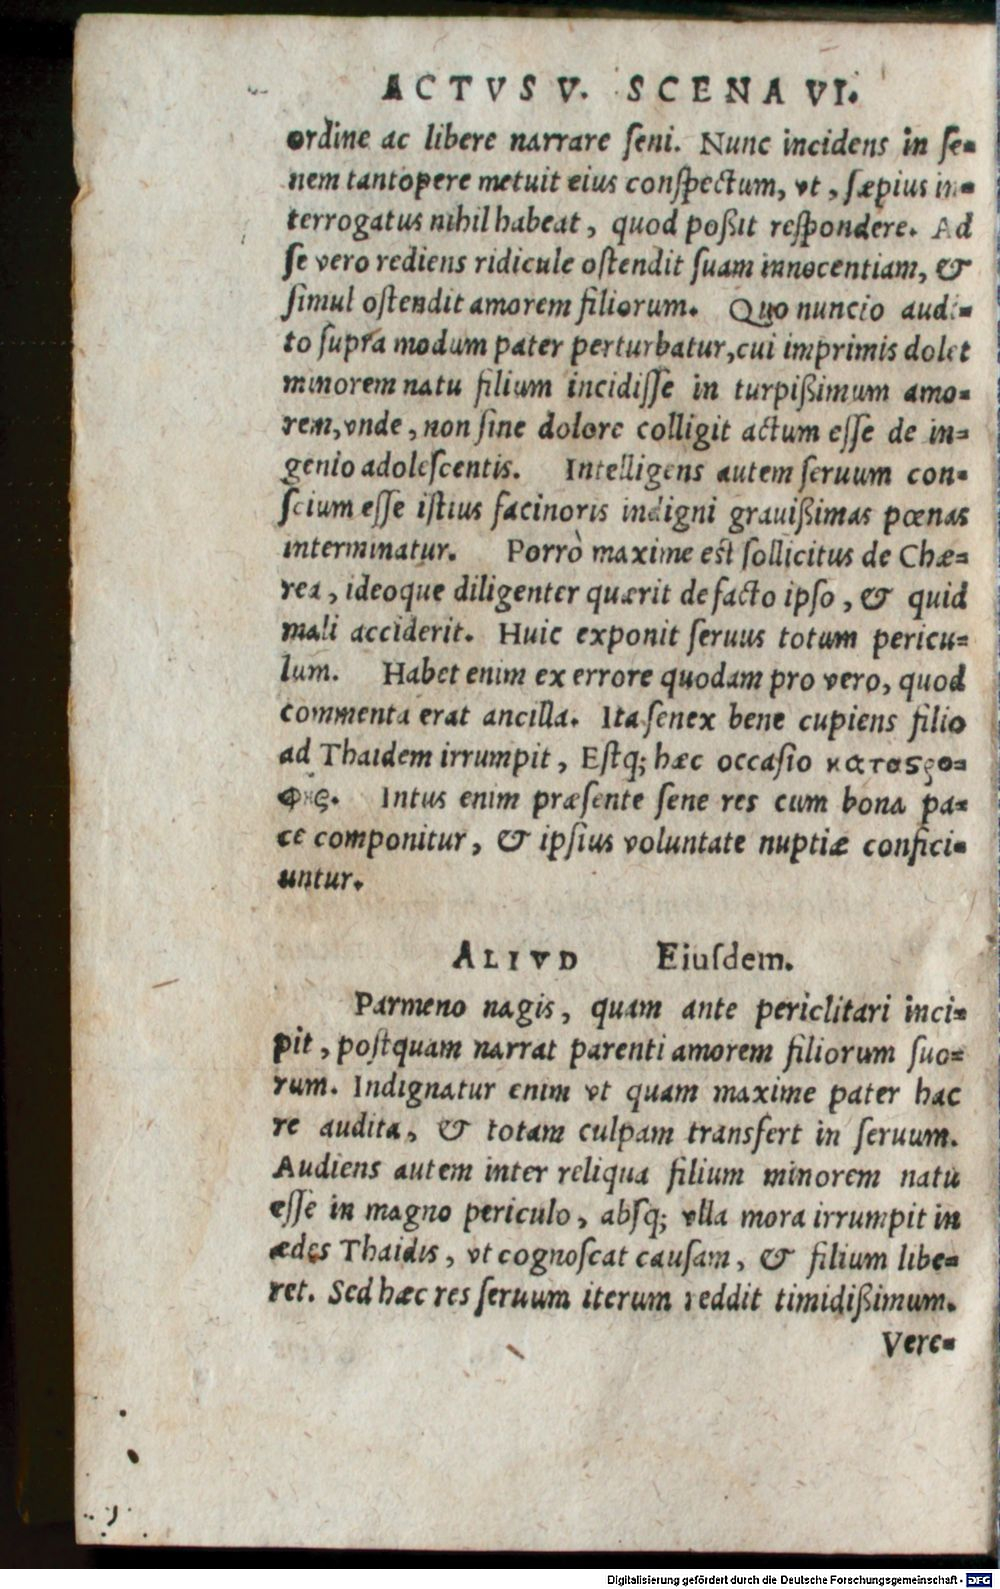 ACTVS V. SCENA VI.
ordine ac libere narrare ſeni. Nunc incidens in ſe-
nem tantopere metuit eius conſpectum, vt, ſæpius in-
terrogatus nihil habeat, quod poßit reſpondere. Ad
ſe vero rediens ridicule oſtendit ſuam innocentiam, &
ſimul oſtendit amorem filiorum. Quo nuncio audi-
to ſupra modum pater perturbatur, cui imprimis dolet
minorem natu filium incidiſſe in turpißimum amo-
rem, vnde, non ſine dolore colligit actum eſſe de in-
genio adoleſcentis. Intelligens autem ſeruum con-
ſcium eſſe iſtius facinoris indigni grauißimas pœnas
interminatur. Porrò maxime est ſollicitus de Chæ-
rea, ideoque diligenter quærit de facto ipſo, & quid
mali acciderit. Huic exponit ſeruus totum pericu-
lum. Habet enim ex errore quodam pro vero, quod
commenta erat ancilla. Ita ſenex bene cupiens filio
ad Thaidem irrumpit, Eſtq; hæc occaſio καταϛρο-
φης. Intus enim præſente ſene res cum bona pa-
ce componitur, & ipſius voluntate nuptiæ confici-
untur.
ALIVD Eiuſdem.
Parmeno nagis, quam ante periclitari inci-
pit, poſtquam narrat parenti amorem filiorum ſuo-
rum. Indignatur enim vt quam maxime pater hac
re audita, & totam culpam transfert in ſeruum.
Audiens autem inter reliqua filium minorem natu
eſſe in magno periculo, abſq; vlla mora irrumpit in
ædes Thaidis, vt cognoſcat cauſam, & filium libe-
ret. Sed hæc res ſeruum iterum reddit timidißimum.
Vere-
Digitalisierung gefördert durch die Deutsche Forschungsgemeinschaft - DFG